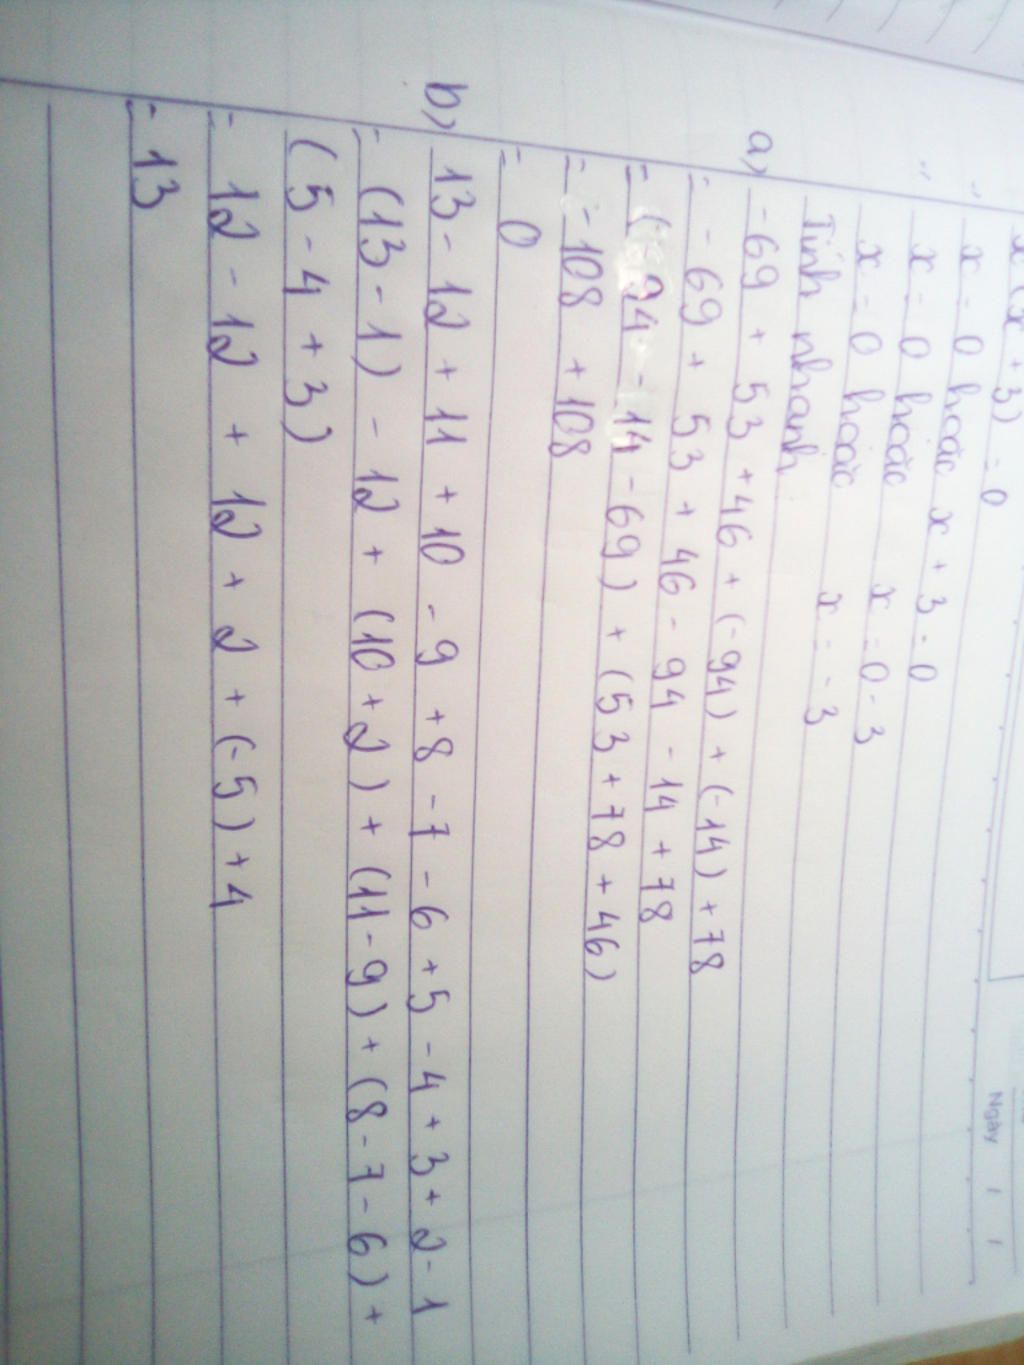 x (x + 3) = 0
x = 0 hoặc x + 3 = 0
x = 0 hoặc x = 0 - 3
x = 0 hoặc x = -3
Tính nhanh
a) -69 + 53 + 46 + (-94) + (-14) + 78
= -69 + 53 + 46 - 94 - 14 + 78
= (-94 - 14 - 69) + (53 + 78 + 46)
= -108 + 108
= 0
b) 13 - 12 + 11 + 10 - 9 + 8 - 7 - 6 + 5 - 4 + 3 + 2 - 1
= (13 - 1) - 12 + (10 + 2) + (11 - 9) + (8 - 7 - 6) +
(5 - 4 + 3)
= 12 - 12 + 12 + 2 + (-5) + 4
= 13
Ngày / /